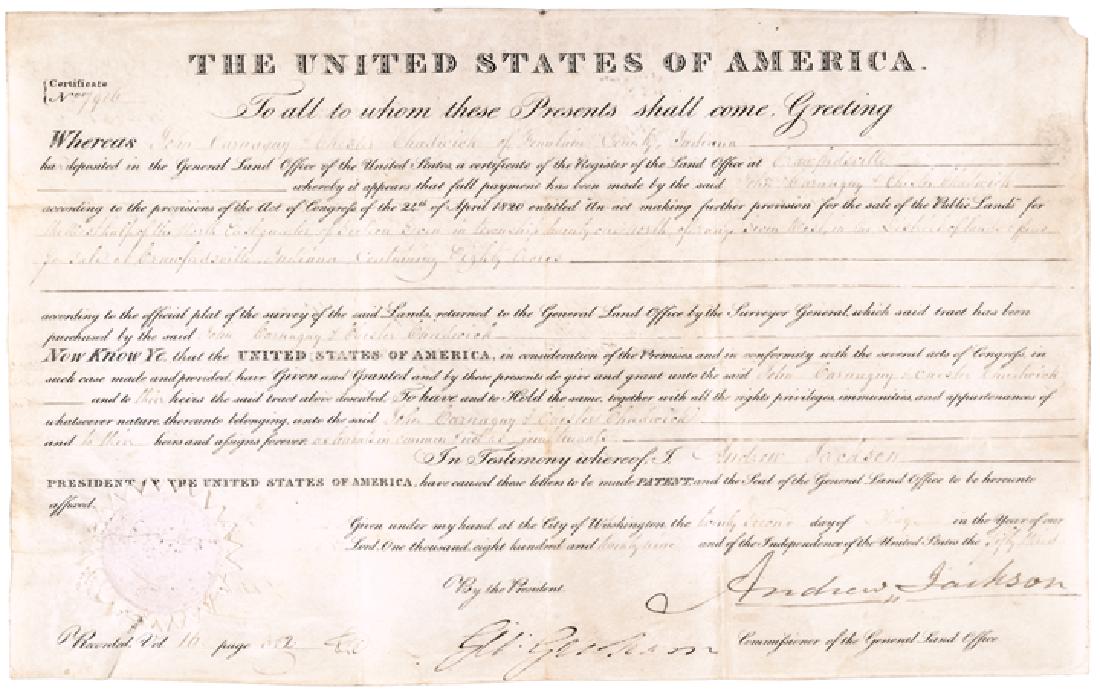 THE UNITED STATES OF AMERICA.
Certificate
No. 7916
To all to whom these Presents shall come, Greeting
Whereas John Carnaguy & Chester Chadwick of Fountain County, Indiana
ha deposited in the General Land Office of the United States, a certificate of the Register of the Land Office at Crawfordsville
whereby it appears that full payment has been made by the said John Carnaguy & Chester Chadwick
according to the provisions of the Act of Congress of the 24th of April 1820 entitled An act making further provision for the sale of the Public Lands for
the half of the North East quarter of Section in township twenty one North of range West, in the District of lands
for Sale at Crawfordsville, Indiana Containing Eighty Acres
according to the official plat of the survey of the said Lands, returned to the General Land Office by the Surveyor General, which said tract has been
purchased by the said John Carnaguy & Chester Chadwick
Now Know Ye, that the UNITED STATES OF AMERICA, in consideration of the Premises and in conformity with the several acts of Congress, in
such case made and provided, have Given and Granted and by these presents do give and grant unto the said John Carnaguy & Chester Chadwick
and to their heirs the said tract above described. To have and to Hold the same, together with all the rights privileges, immunities, and appurtenances of
whatsoever nature, thereunto belonging, unto the said John Carnaguy & Chester Chadwick
and to their heirs and assigns forever, as tenants in common & not as joint tenants
In Testimony whereof, I, Andrew Jackson
PRESIDENT OF THE UNITED STATES OF AMERICA, have caused these letters to be made PATENT, and the Seal of the General Land Office to be hereunto
affixed.
Given under my hand, at the City of Washington the day of in the Year of our
Lord One thousand, eight hundred and twenty nine and of the Independence of the United States the fifty third
By the President
Andrew Jackson
Recorded, Vol 16 page
Commissioner of the General Land Office